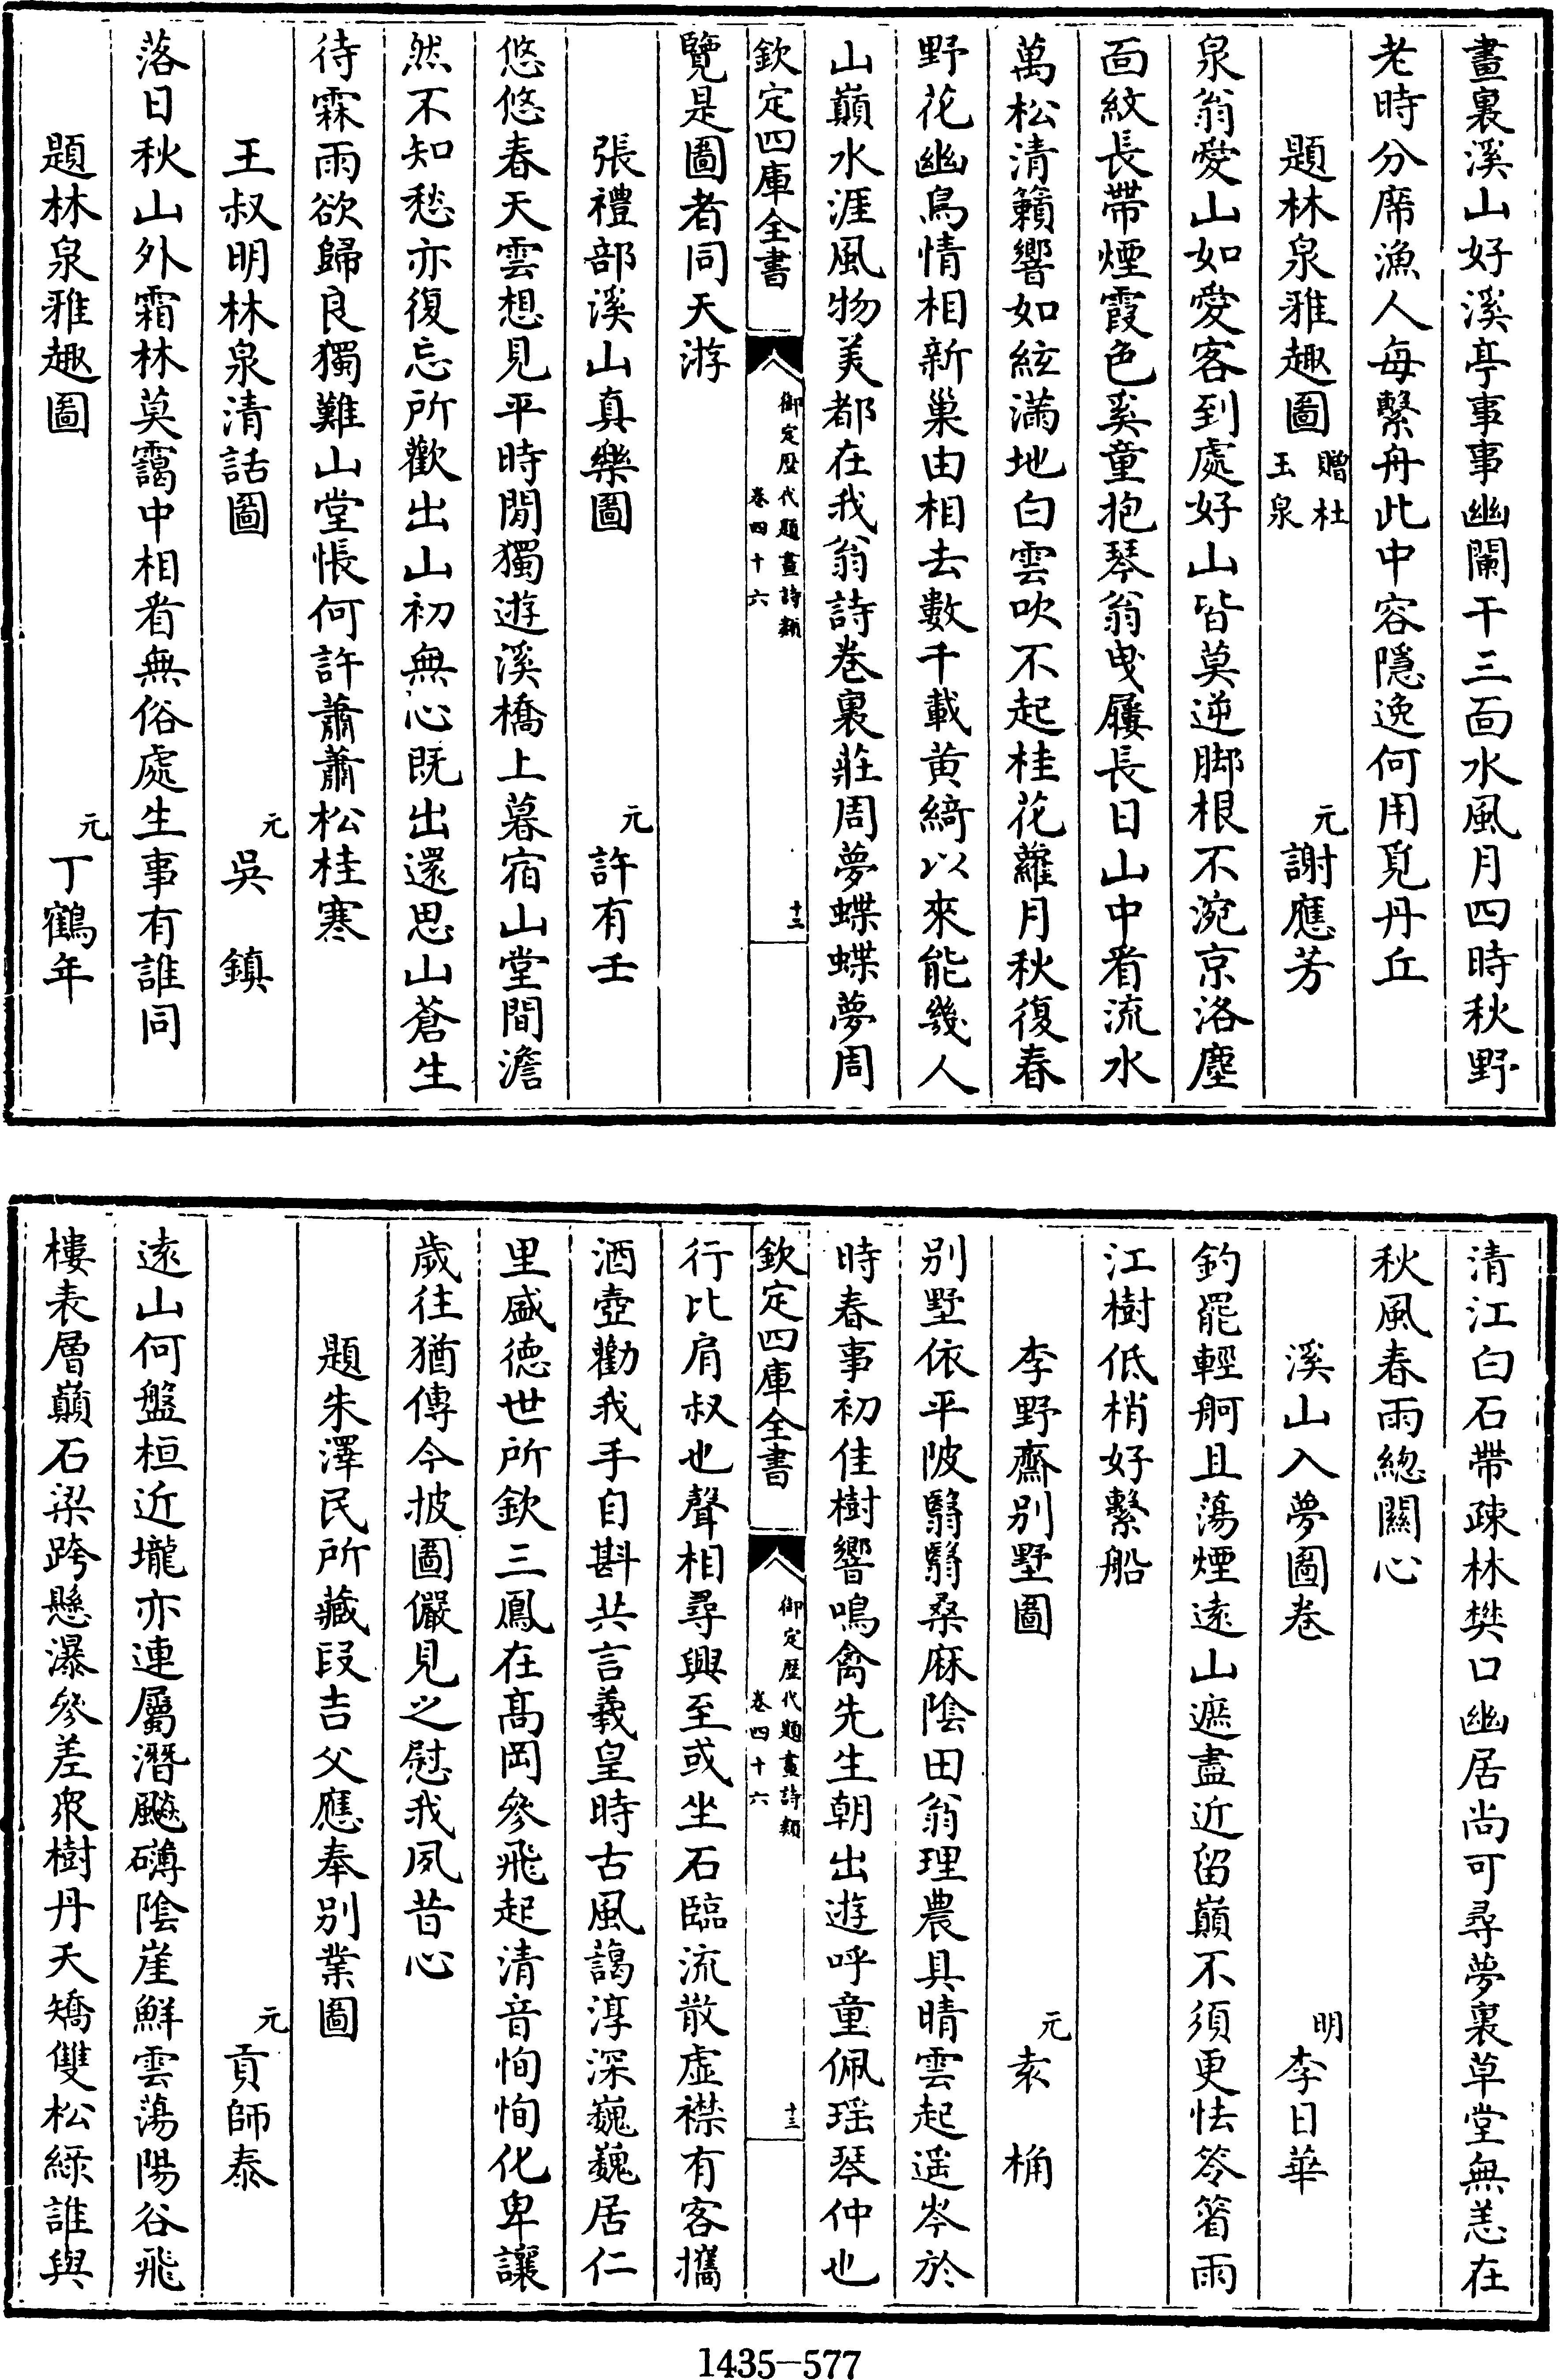 畫裏溪山好溪亭事事幽闌干三面水風月四時秋野
老時分席漁人每繫舟此中容隱逸何用覓丹丘
題林泉雅趣圖贈杜玉泉 元謝應芳
泉翁愛山如愛客到處好山皆莫逆脚根不涴京洛塵
面紋長帶煙霞色奚童抱琴翁曳屨長日山中看流水
萬松清籟響如絃滿地白雲吹不起桂花蘿月秋復春
野花幽鳥情相新巢由相去數千載黄綺以來能幾人
山巔水涯風物美都在我翁詩卷裏莊周夢蝶蝶夢周
欽定四庫全書 御定歷代題畫詩類 卷四十六 十二
覽是圖者同天游
張禮部溪山真樂圖 元許有壬
悠悠春天雲想見平時閒獨遊溪橋上暮宿山堂間澹
然不知愁亦復忘所歡出山初無心既出還思山蒼生
待霖雨欲歸良獨難山堂悵何許蕭蕭松桂寒
王叔明林泉清話圖 元吳鎮
落日秋山外霜林莫靄中相看無俗處生事有誰同
題林泉雅趣圖 元丁鶴年
清江白石帶疎林樊口幽居尚可尋夢裏草堂無恙在
秋風春雨總關心
溪山入夢圖卷 明李日華
釣罷輕舸且蕩煙遠山遮盡近留巔不須更怯笭箵雨
江樹低梢好繫船
李野齋別墅圖 元袁桷
別墅依平陂翳翳桑麻陰田翁理農具晴雲起遥岑於
時春事初佳樹響鳴禽先生朝出遊呼童佩瑶琴仲也
欽定四庫全書 御定歷代題畫詩類 卷四十六 十三
行比肩叔也聲相尋興至或坐石臨流散虚襟有客攜
酒壺勸我手自斟共言羲皇時古風藹淳深巍巍居仁
里盛德世所欽三鳳在高岡參飛起清音恂恂化卑讓
歲往猶傳今披圖儼見之慰我夙昔心
題朱澤民所藏段吉父應奉别業圖
元貢師泰
遠山何盤桓近壠亦連屬潛颷礴陰崖鮮雲蕩陽谷飛
樓表層巔石梁跨懸瀑參差衆樹丹夭矯雙松緑誰與
1435—577